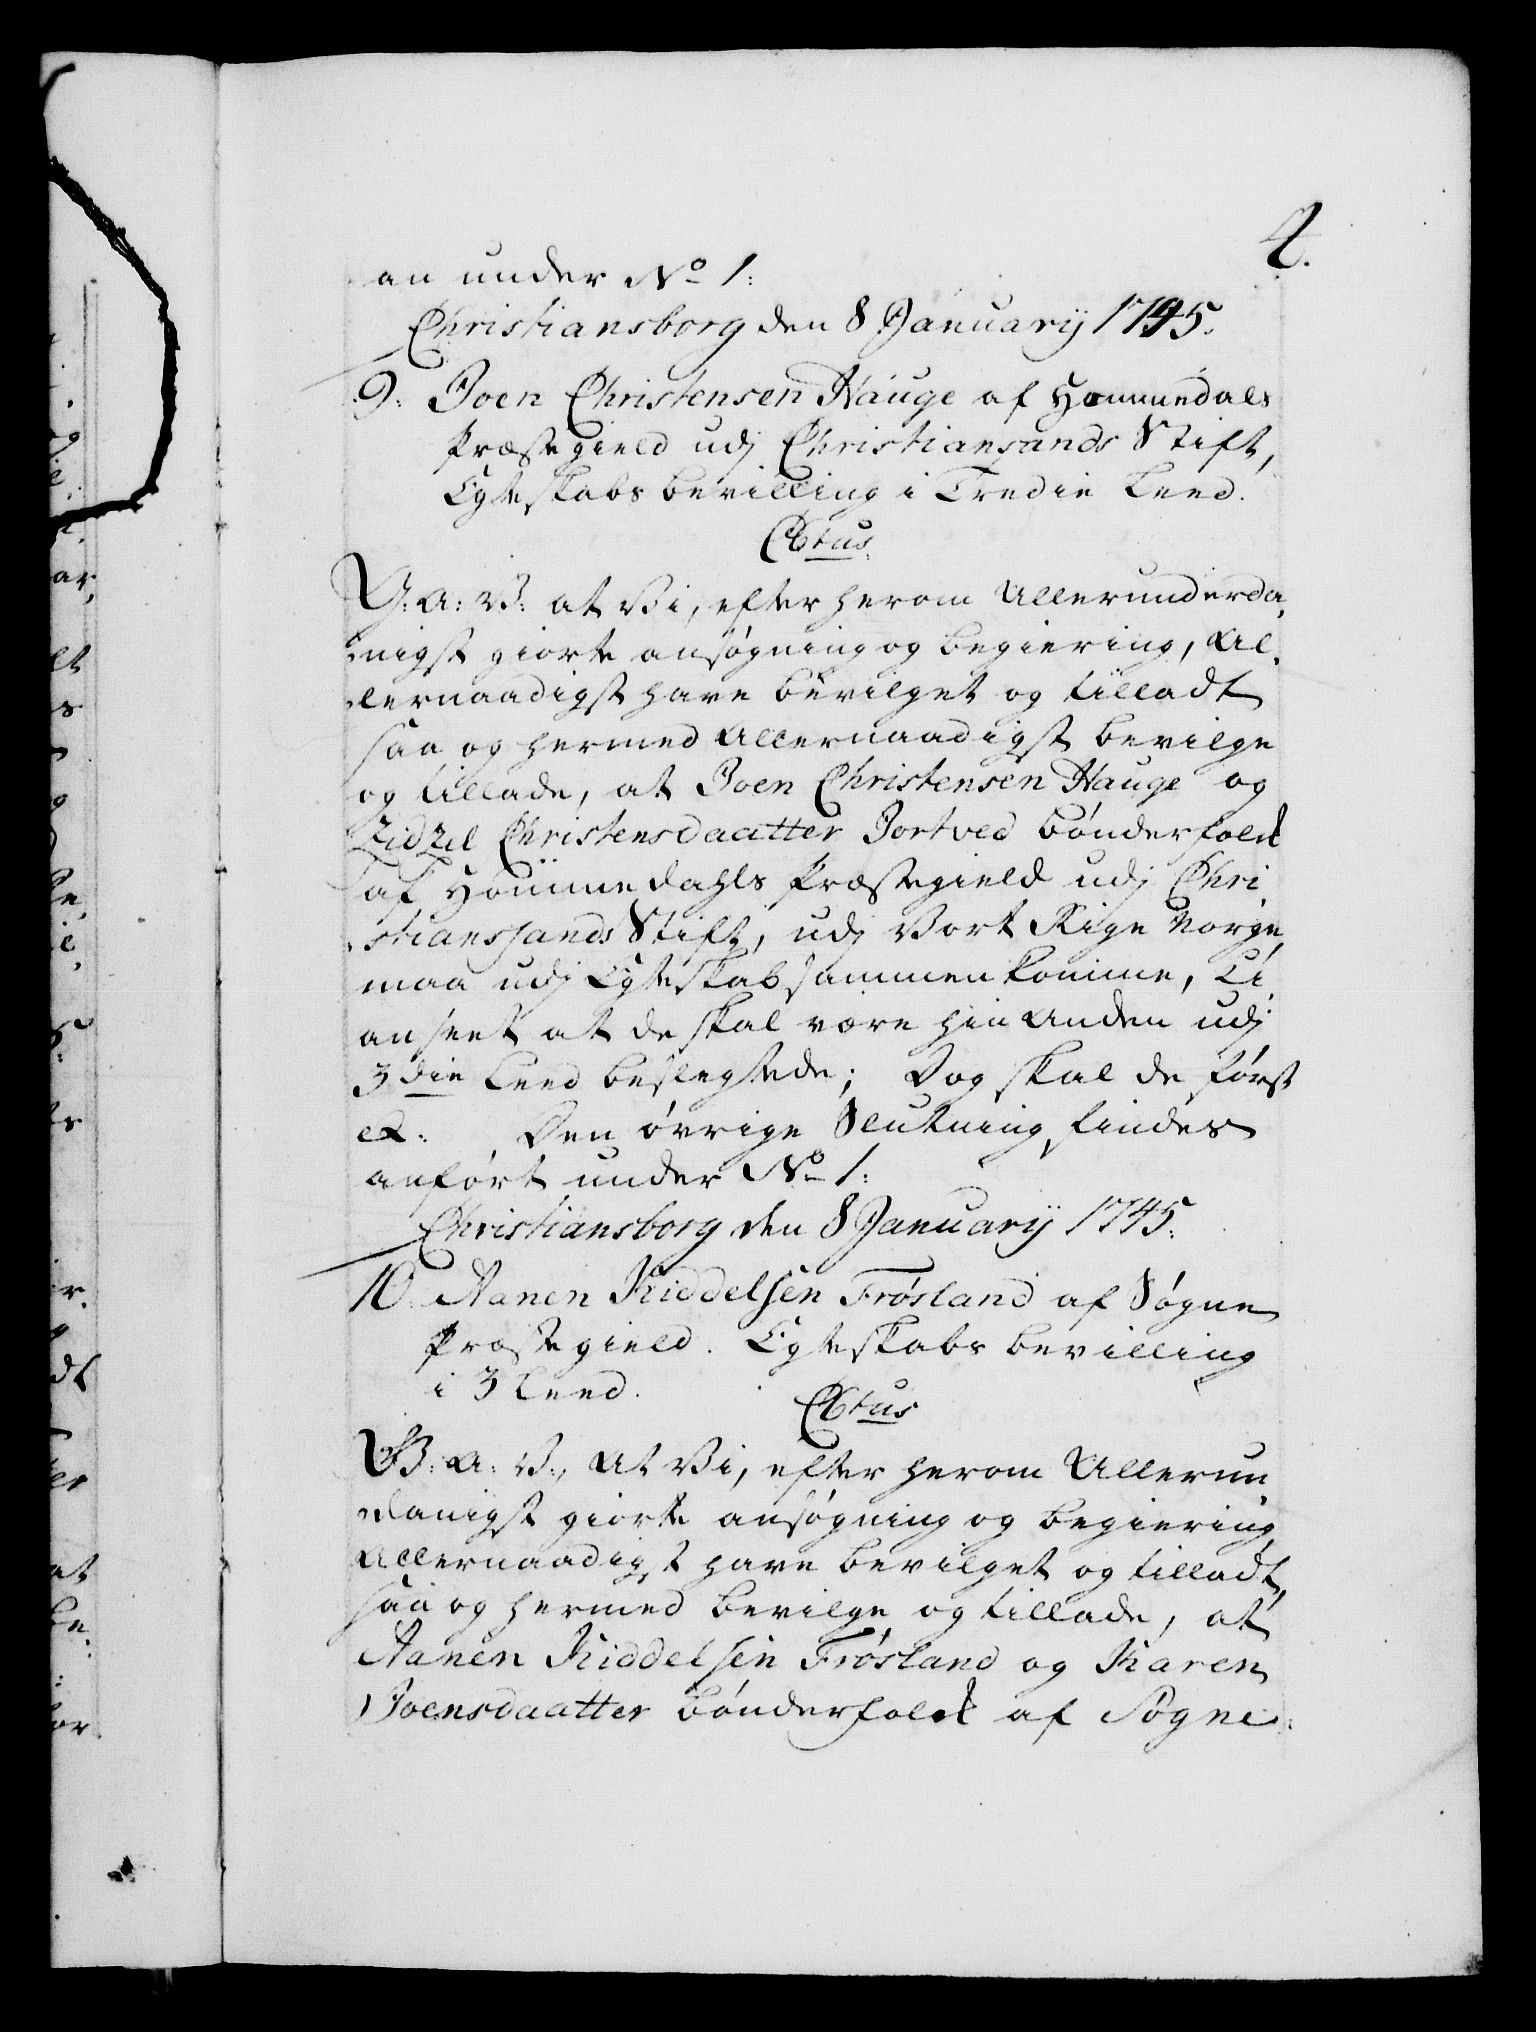 4.
an under No 1:
Christiansborg den 8 Januarij 1745.
9. Joen Christensen Hauge af Hommedals
Præstegield udj Christiansands Stift,
Egteskabs bevilling i Tredie Leed.
Ctus
G: A: V: at Vi, efter herom Allerunderda,
nigst giorte ansøgning og begiering, Al,
lernaadigst have bevilget og tilladt
saa og hermed Allernaadigst bevilge
og tillade, at Joen Christensen Hauge og
Zidzel Christensdaatter Jortved bønderfolck
af Hommedahls Præstegield udj Chri,
stiansands Stift, udj Vort Rige Norge,
maa udj Egteskab sammenkomme, U,
anseet at de skal være hin Anden udj
3die Leed beslegtede; Dog skal de først
etc: Den øvrige Slutning findes
anført under No 1:
Christiansborg den 8 Januarij 1745.
10. Aanen Kiddelsen Frøsland af Søgne
Præstegield. Egteskabs bevilling
i 3 Leed.
Ctus
G: A: V:, At Vi, efter herom Allerun,
danigst giorte ansøgning og begiering
Allernaadigst have bevilget og tilladt,
saa og hermed bevilge og tillade, at
Aanen Kiddelsen Frøsland og Karen
Joensdaatter bønderfolck af Søgne